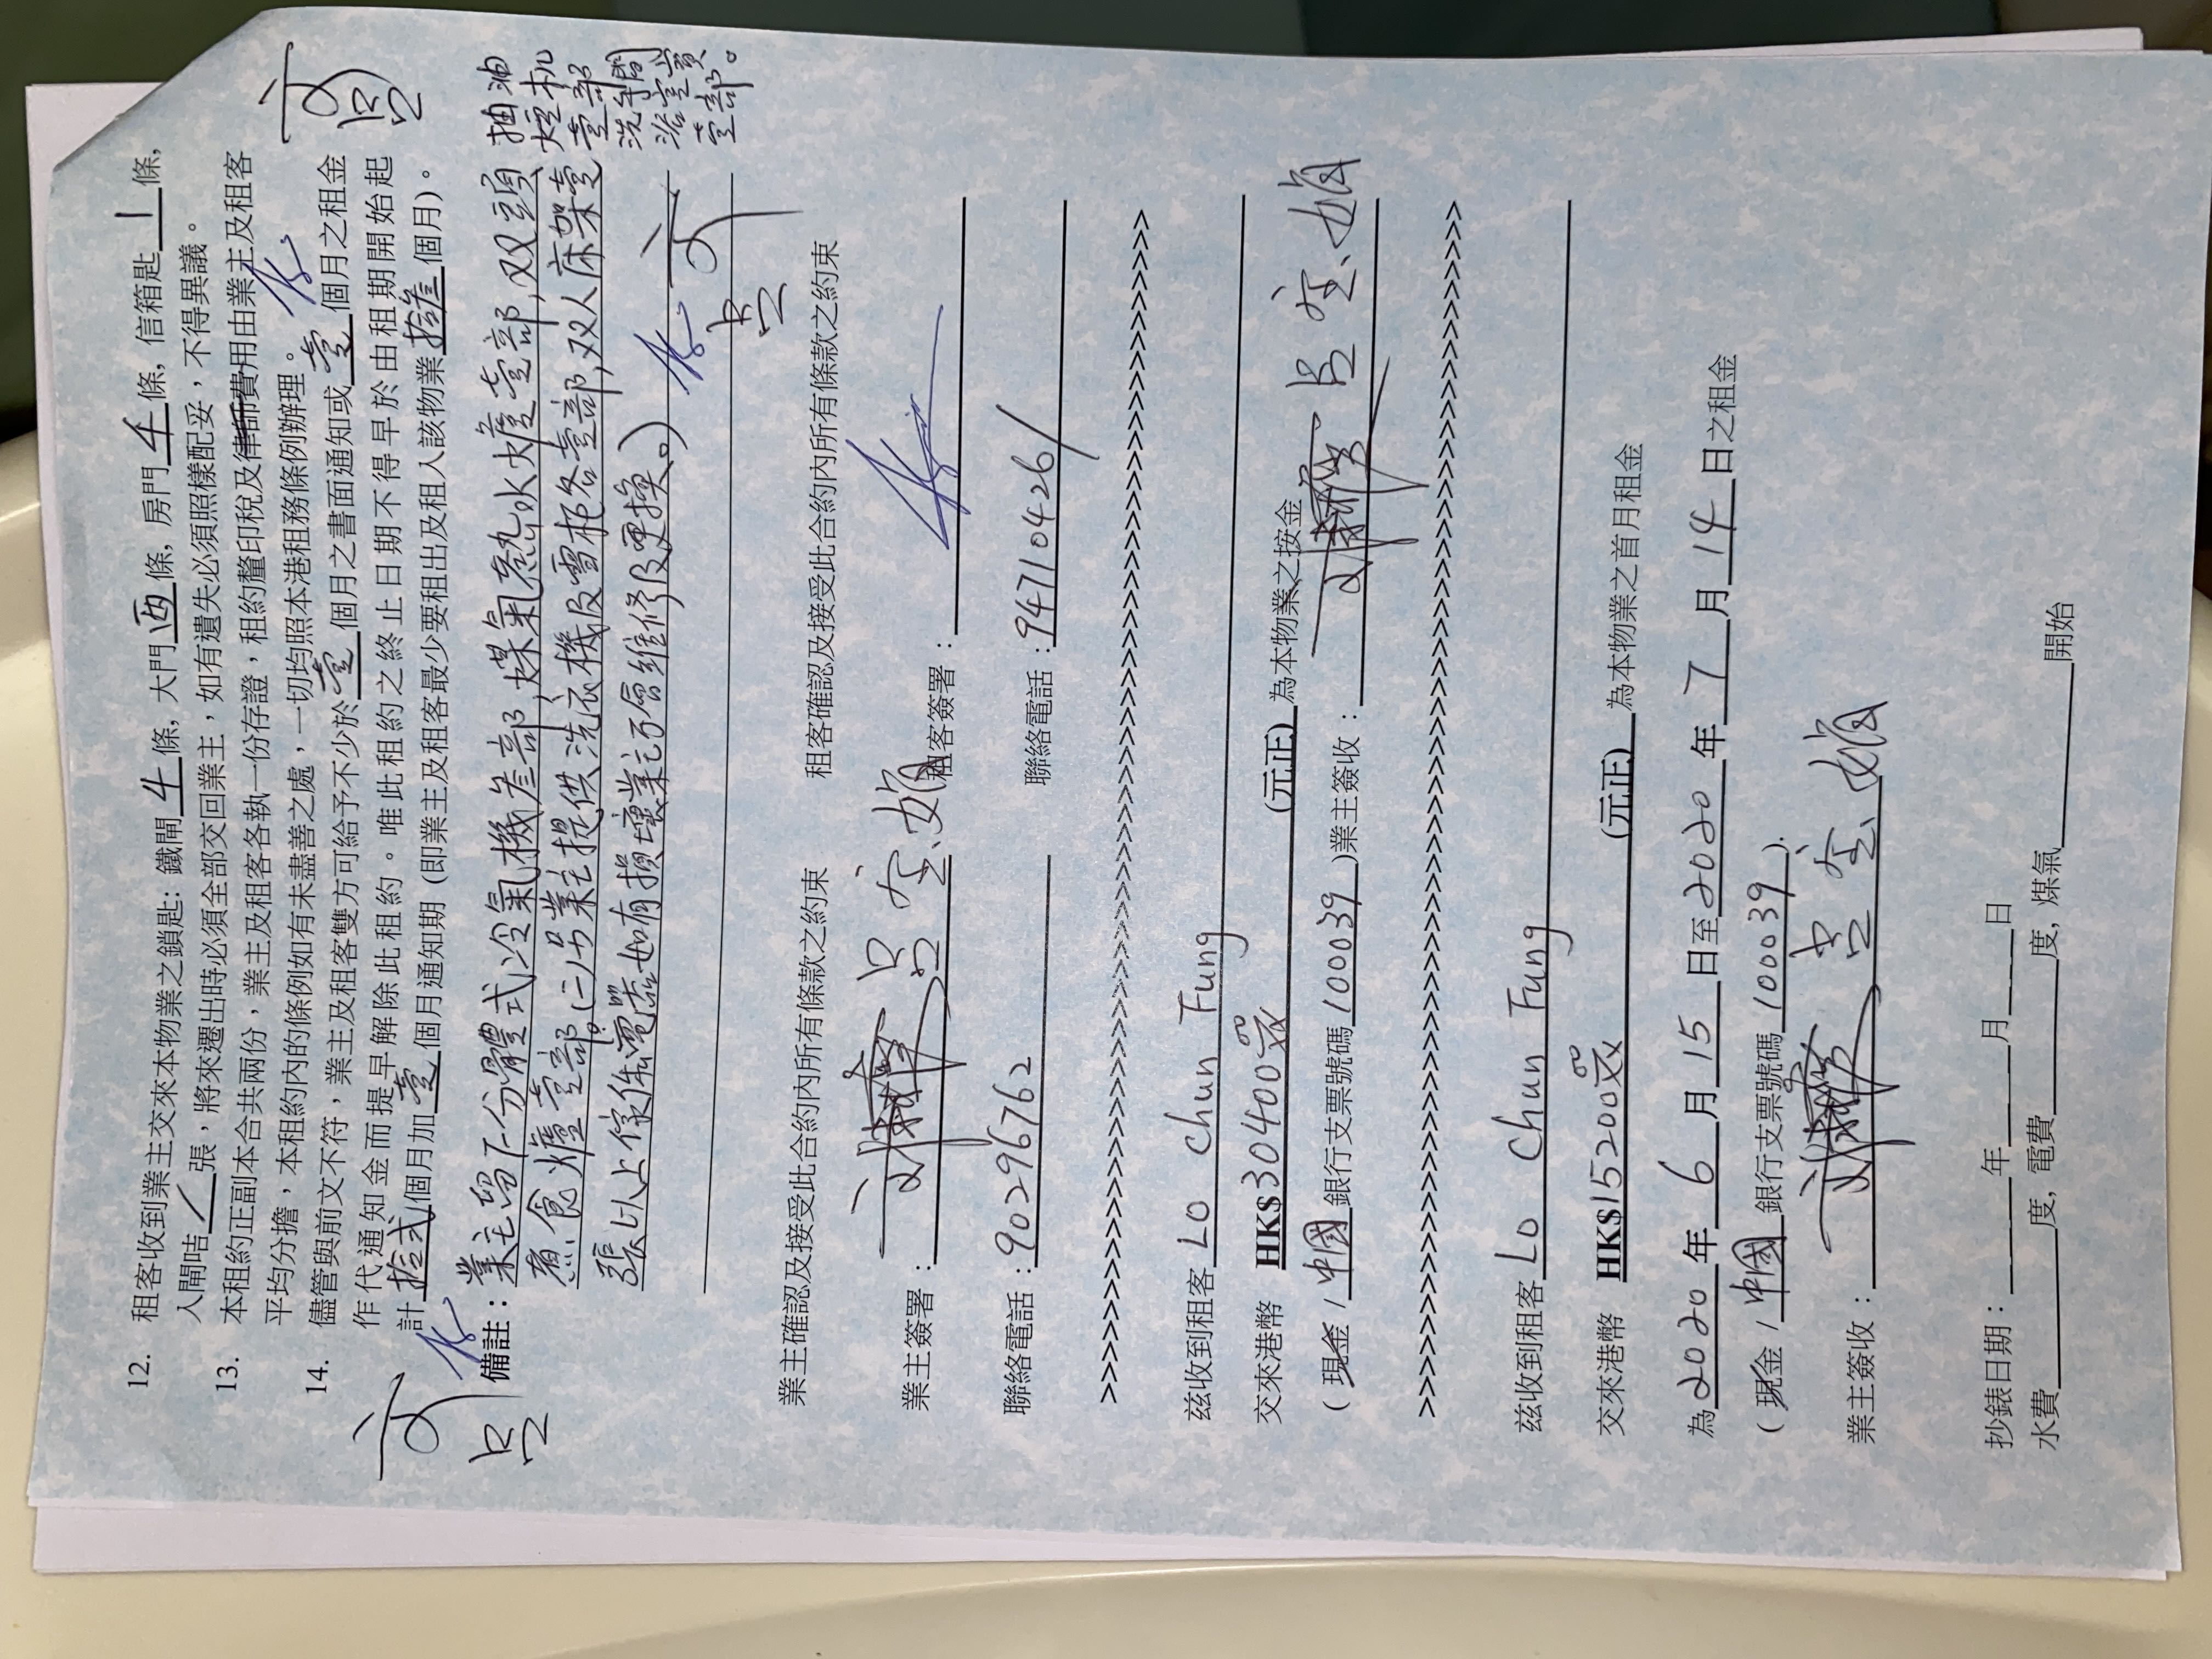 12. 租客收到業主交來本物業之鎖匙: 鐵閘 4 條, 大門 四 條, 房門 4 條, 信箱匙 1 條,
入閘咭 / 張, 將來遷出時必須全部交回業主, 如有遺失必須照樣配妥, 不得異議。
13. 本租約正副本合共兩份, 業主及租客各執一份存證, 租約釐印稅及律師費用由業主及租客
平均分擔, 本租約內的條例如有未盡善之處, 一切均照本港租務條例辦理。
14. 儘管與前文不符, 業主及租客雙方可給予不少於 壹 個月之書面通知或 壹 個月之租金
作代通知金而提早解除此租約。唯此租約之終止日期不得早於由租期開始起
計 拾弍 個月加 壹 個月通知期 (即業主及租客最少要租出及租入該物業 拾叁 個月)。
備註: 業主留下分體式冷氣機叁部, 煤氣熱水爐壹部, 双頭
煮食爐壹部。(二)另業主提供洗衣機及雪柜各壹部, 双人床架壹
張以上傢俬電器如有損壞業主不會維修及更換。)
抽油
烟机
壹部
洗手間
浴室寶
壹部。
業主確認及接受此合約內所有條款之約束 租客確認及接受此合約內所有條款之約束
業主簽署: 租客簽署:
聯絡電話: 90296762 聯絡電話: 94710426
>>>>>>>>>>>>>>>>>>>>>>>>>>>>>>>>>>>>>>>>>>>>>>>>>>>>>>>>>>>>
茲收到租客 Lo Chun Fung
交來港幣 HK$30400.00 (元正) 為本物業之按金
( 現金 / 中國 銀行支票號碼 100039 ) 業主簽收:
>>>>>>>>>>>>>>>>>>>>>>>>>>>>>>>>>>>>>>>>>>>>>>>>>>>>>>>>>>>>
茲收到租客 Lo Chun Fung
交來港幣 HK$15200.00 (元正) 為本物業之首月租金
為 2020 年 6 月 15 日至 2020 年 7 月 14 日之租金
( 現金 / 中國 銀行支票號碼 100039 ).
業主簽收:
抄錶日期: 年 月 日
水費 度, 電費 度, 煤氣 開始